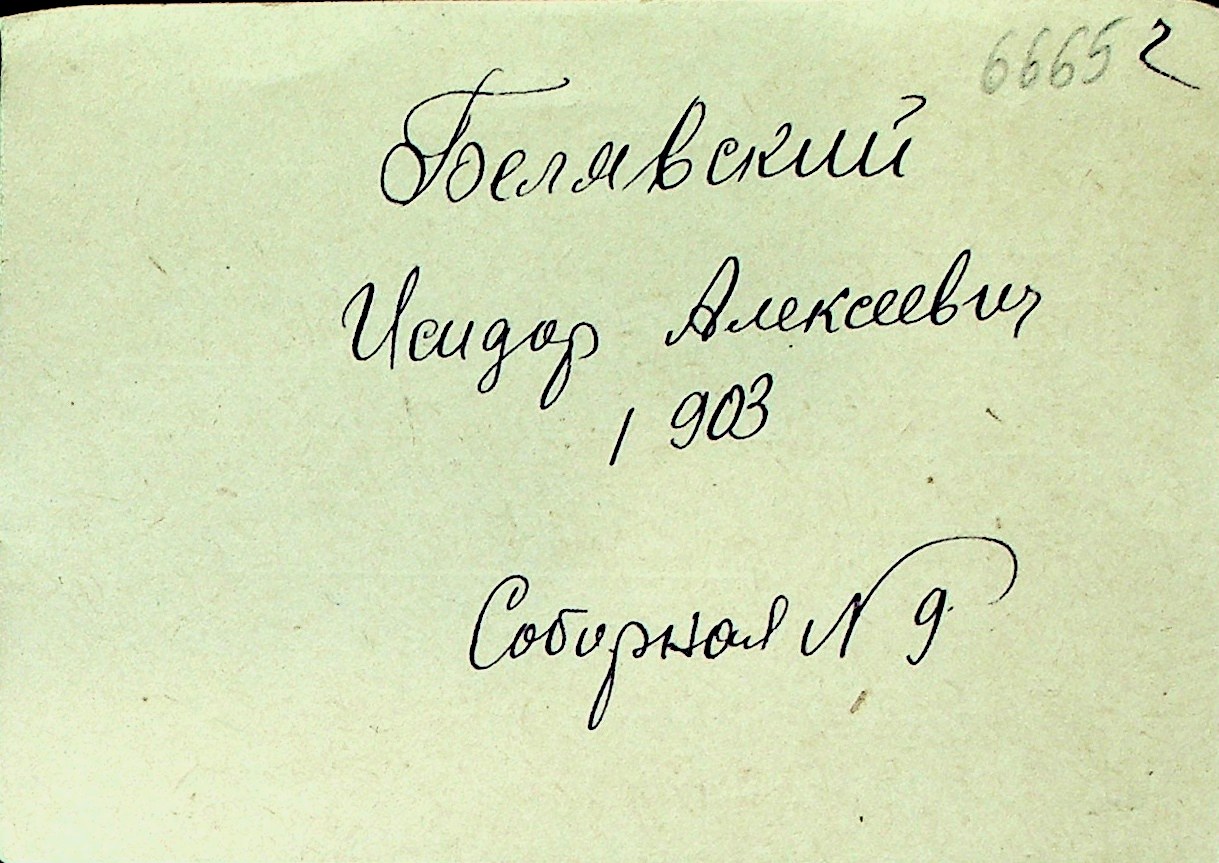 6665 2
Белявский
Исидор Алексеевич
1903
Соборная N 9